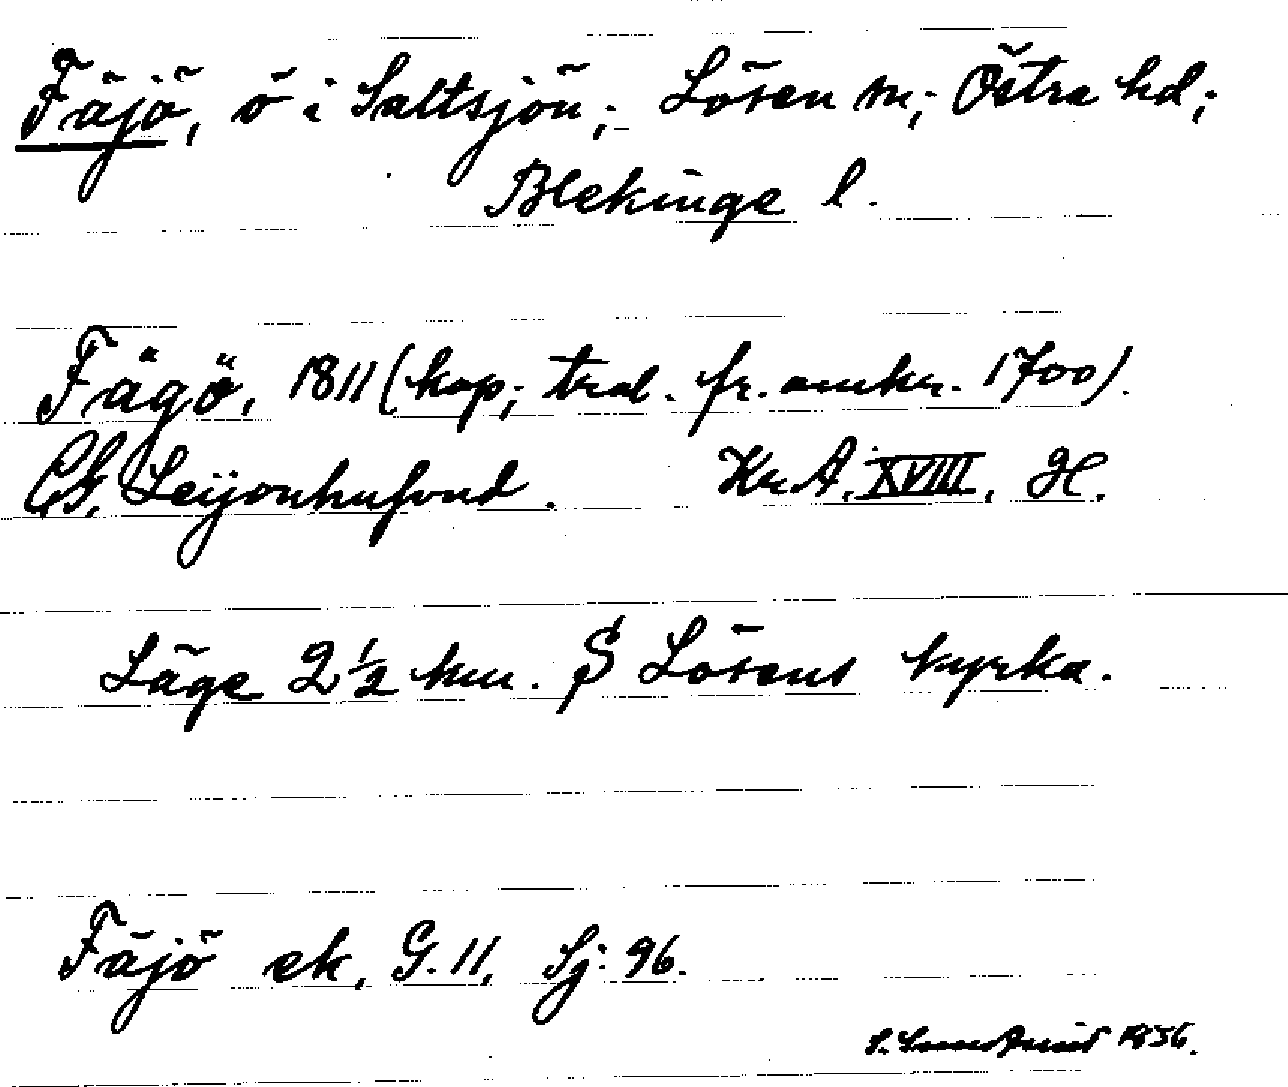 Fäjö, ö i Saltsjön; Lösen sn; Östra hd;
Blekinge l.
Fägö, 1811 (kop; trad. fr. omkr. 1700).
CG. Leijonhufvud. Kr. A. XVIII, H.
Läge 2 1/2 km. S Lösens kyrka.
Fäjö ek. G. 11, Sj: 96.
S. 1936.